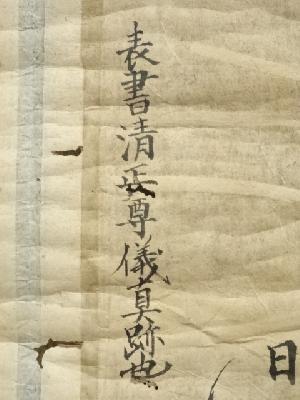 表書清氏尊儀真跡也
日